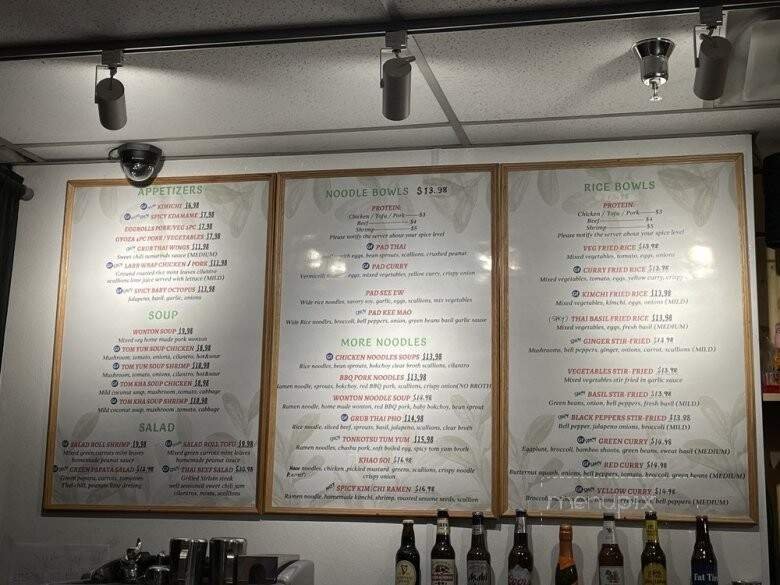 APPETIZERS
KIMICHI $6.98
SPICY EDAMAME $7.98
EGGROLLS PORK/VEG 5PC $7.98
GYOZA 6PC PORK/VEGETABLES $7.98
GRUB THAI WINGS $11.98
Sweet chili tamarinds sauce (MEDIUM)
LABB WRAP CHICKEN / PORK $11.98
Ground roasted rice mint leaves cilantro
scallions lime juice served with lettuce (MILD)
SPICY BABY OCTOPUS $13.98
Jalapeno, basil, garlic, onions
SOUP
WONTON SOUP $9.98
Mixed veg home made pork wonton
TOM YUM SOUP CHICKEN $8.98
Mushroom, tomato, onions, cilantro, hot&sour
TOM YUM SOUP SHRIMP $10.98
Mushroom, tomato, onions, cilantro, hot&sour
TOM KHA SOUP CHICKEN $8.98
Mild coconut soup, mushroom, tomato, cabbage
TOM KHA SOUP SHRIMP $10.98
Mild coconut soup, mushroom, tomato, cabbage
SALAD
SALAD ROLL SHRIMP $9.98
Mixed green carrots mint leaves
homemade peanut sauce
SALAD ROLL TOFU $9.98
Mixed green carrots mint leaves
homemade peanut sauce
GREEN PAPAYA SALAD $14.98
Green papaya, carrots, tomatoes
Thai chili, peanuts lime dressing
THAI BEEF SALAD $10.98
Grilled Sirloin steak
well seasoned sweet chili jam
cilantro, mints, scallions
NOODLE BOWLS $13.98
PROTEIN:
Chicken / Tofu / Pork $3
Beef $4
Shrimp $5
Please notify the server about your spice level
PAD THAI
with eggs, bean sprouts, scallions, crushed peanut
PAD CURRY
Vermicelli eggs, mixed vegetables, yellow curry, crispy onion
PAD SEE EW
Wide rice noodles, savory soy, garlic, eggs, scallions, mix vegetables
PAD KEE MAO
Wide Rice noodles, broccoli, bell peppers, onion, green beans basil garlic sauce
MORE NOODLES
CHICKEN NOODLES SOUPS $13.98
Rice noodles, bean sprouts, bokchoy clear broth scallions, cilantro
BBQ PORK NOODLES $13.98
Ramen noodle, sprouts, bokchoy, red BBQ pork, scallions, crispy onion(NO BROTH)
WONTON NOODLE SOUP $14.98
Ramen noodle, home made wonton, red BBQ pork, baby bokchoy, bean sprout
GRUB THAI PHO $14.98
Rice noodle, sliced beef, sprouts, basil, jalapeno, scallions, clear broth
TONKOTSU TUM YUM $15.98
Ramen noodles, chashu pork, soft boiled egg, spicy tom yum broth
KHAO SOI $16.98
noodles, chicken, pickled mustard, greens, scallions, crispy noodle
crispy onion
SPICY KIMICHI RAMEN $16.98
Ramen noodles, homemade kimchi, shrimp, roasted sesame seeds, scallion
RICE BOWLS
PROTEIN:
Chicken / Tofu / Pork $3
Beef $4
Shrimp $5
Please notify the server about your spice level
VEG FRIED RICE $13.98
Mixed vegetables, tomato, eggs, onions
CURRY FRIED RICE $13.98
Mixed vegetables, tomato, eggs, yellow curry, crispy
KIMCHI FRIED RICE $13.98
Mixed vegetables, kimchi, eggs, onions (MILD)
(SPICY) THAI BASIL FRIED RICE $13.98
Mixed vegetables, eggs, fresh basil (MEDIUM)
GINGER STIR-FRIED $13.98
Mushrooms, bell peppers, ginger, onions, carrot, scallions (MILD)
VEGETABLES STIR-FRIED $13.98
Mixed vegetables stir fried in garlic sauce
BASIL STIR-FRIED $13.98
Green beans, onion, bell peppers, fresh basil (MILD)
BLACK PEPPERS STIR-FRIED $13.98
Bell pepper, jalapeno onions, broccoli (MILD)
GREEN CURRY $14.98
Eggplant, broccoli, bamboo shoots, green beans, sweet basil (MEDIUM)
RED CURRY $14.98
Butternut squash, onions, bell peppers, tomato, broccoli, green beans (MEDIUM)
YELLOW CURRY $14.98
bell peppers (MEDIUM)
menupix